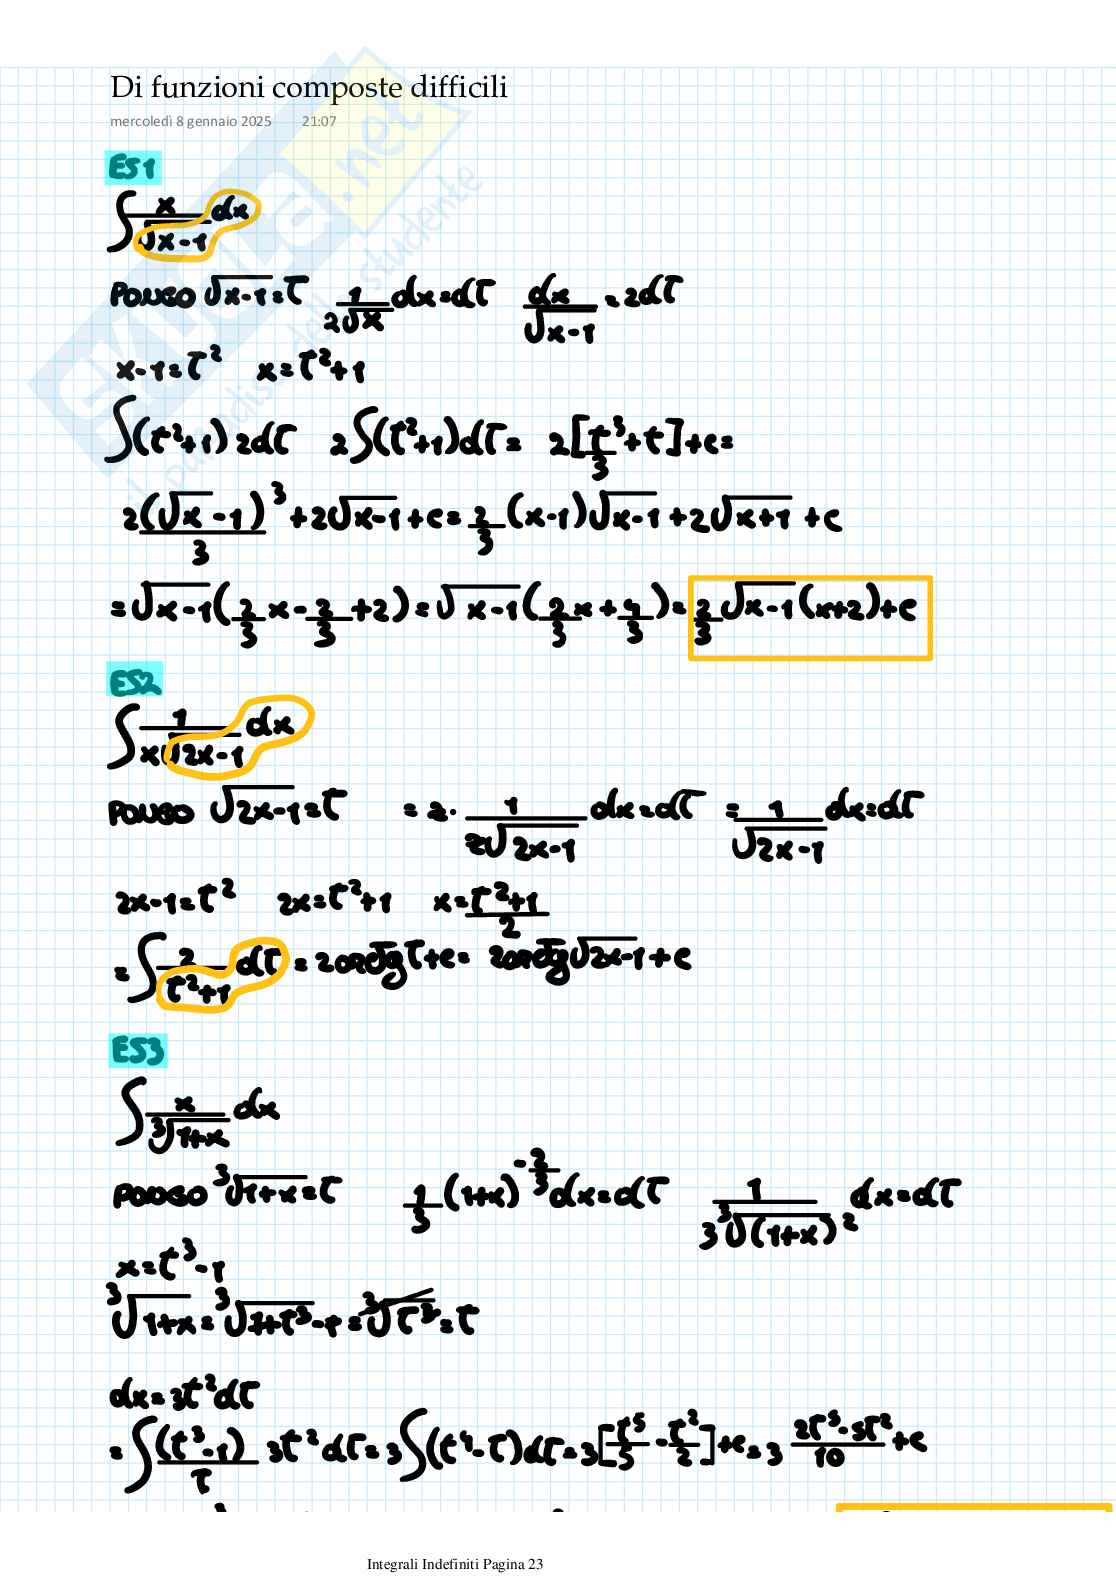 Di funzioni composte difficili
mercoledì 8 gennaio 2025 21:07
ES1
∫ x/√(x-1) dx
PONGO √(x-1) = t   1/(2√x) dx = dt   dx/√(x-1) = 2dt
x-1 = t²   x = t²+1
∫(t²+1) 2dt   2∫(t²+1)dt = 2[t³/3 + t] + c =
2(√x -1)³/3 + 2√(x-1) + c = 2/3 (x-1)√(x-1) + 2√(x+1) + c
= √(x-1) (2/3 x - 2/3 + 2) = √(x-1) (2/3 x + 4/3) = 2/3 √(x-1) (x+2) + c
ES2
∫ 1/(x√(2x-1)) dx
PONGO √(2x-1) = t   = 2 · 1/(2√(2x-1)) dx = dt   = 1/√(2x-1) dx = dt
2x-1 = t²   2x = t²+1   x = (t²+1)/2
= ∫ 2/(t²+1) dt = 2arctg t + c = 2arctg √(2x-1) + c
ES3
∫ x/∛(1+x) dx
PONGO ∛(1+x) = t   1/3 (1+x)^(-2/3) dx = dt   1/(3∛(1+x)²) dx = dt
x = t³-1
∛(1+x) = ∛(1+t³-1) = ∛(t³) = t
dx = 3t²dt
= ∫ (t³-1)/t 3t² dt = 3∫(t⁴-t)dt = 3[t⁵/5 - t²/2] + c = 3 (2t⁵-5t²)/10 + c
Integrali Indefiniti Pagina 23
SKUOLA.net
il paradiso dello studente